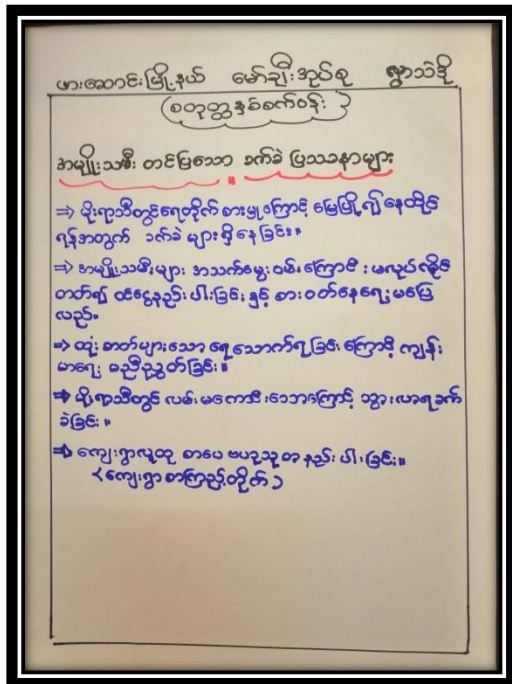 ဖားဆောင်းမြို့နယ် မော်ချီးအုပ်စု ရွာသစ်ဒို
စတုတ္ထနှစ်စက်ဝန်း
အမျိုးသမီး တင်ပြသော ခက်ခဲ ပြဿနာများ
⇒ မိုးရာသီတွင်ရေတိုက်စားမှုကြောင့် မြေပြို၍ နေထိုင်
ရန်အတွက် ခက်ခဲ များရှိနေခြင်း။
⇒ အမျိုးသမီးများ အသက်မွေးဝမ်းကြောင်း မလုပ်ကိုင်
တတ်၍ ဝင်ငွေနည်းပါးခြင်း နှင့် စားဝတ်နေရေးမပြေ
လည်။
⇒ ထုံးဓာတ်များသော ရေသောက်ရခြင်းကြောင့် ကျန်း
မာရေး ချည့်နဲ့ခြင်း။
⇒ မိုးရာသီတွင် လမ်းမကောင်းသောကြောင့် သွားလာရခက်
ခဲခြင်း။
⇒ ကျေးရွာလူထု စာပေ ဗဟုသုတ နည်းပါးခြင်း။
(ကျေးရွာစာကြည့်တိုက်)